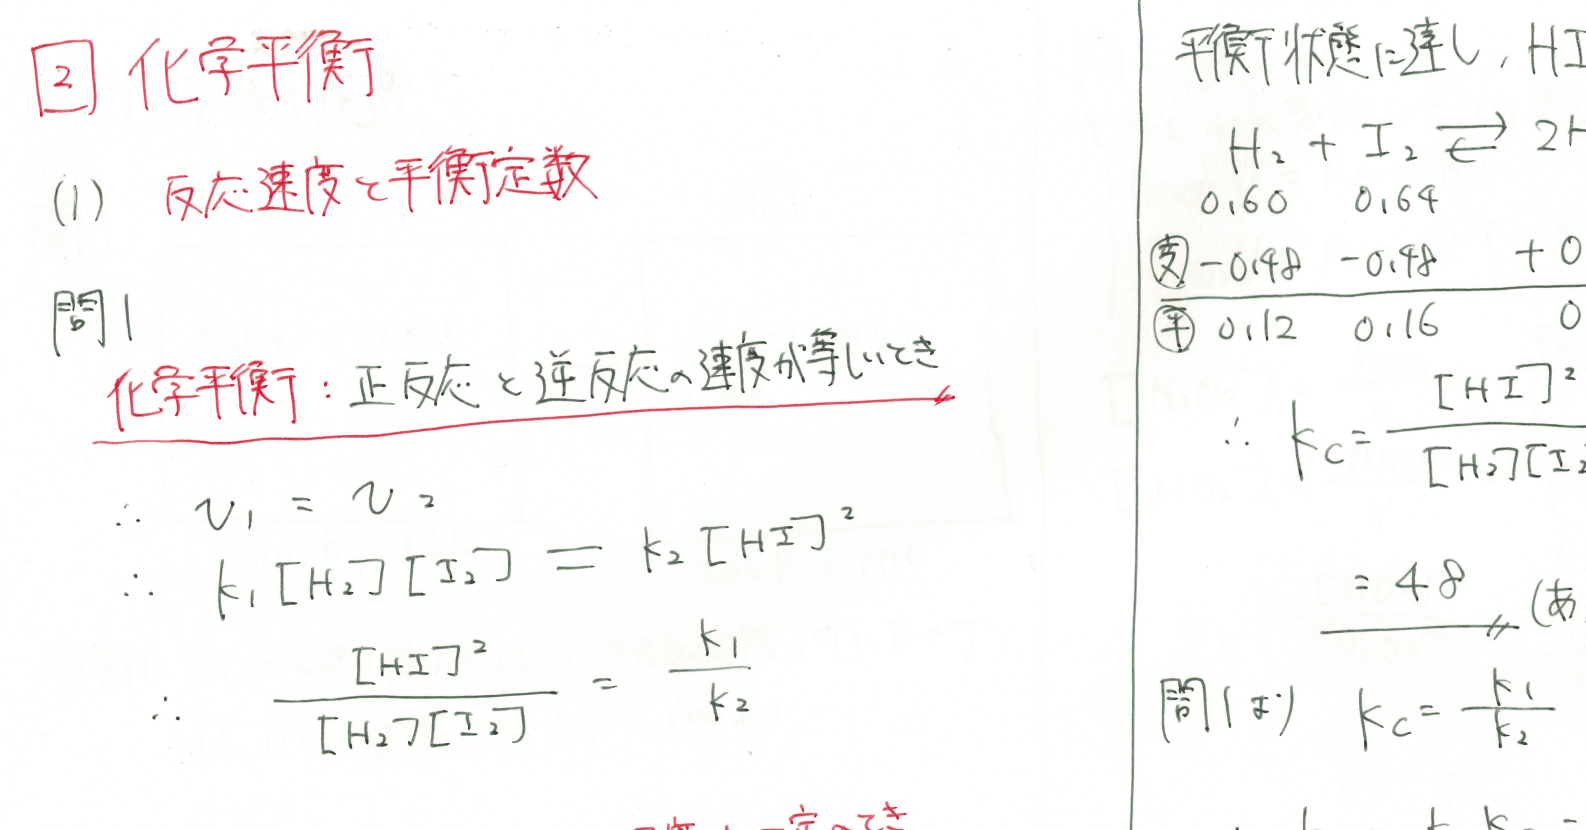 2 化学平衡
(1) 反応速度と平衡定数
問1
化学平衡:正反応と逆反応の速度が等しいとき
∴ v₁ = v₂
∴ k₁[H₂][I₂] = k₂[HI]²
∴ [HI]²/[H₂][I₂] = k₁/k₂
一定のとき
平衡状態に達し, HI
H₂ + I₂ ⇄ 2H
0.60 0.64
変 -0.48 -0.48 +0
平 0.12 0.16 0
∴ Kc = [HI]²/[H₂][I₂
= 48 (あ
問1より Kc = k₁/k₂